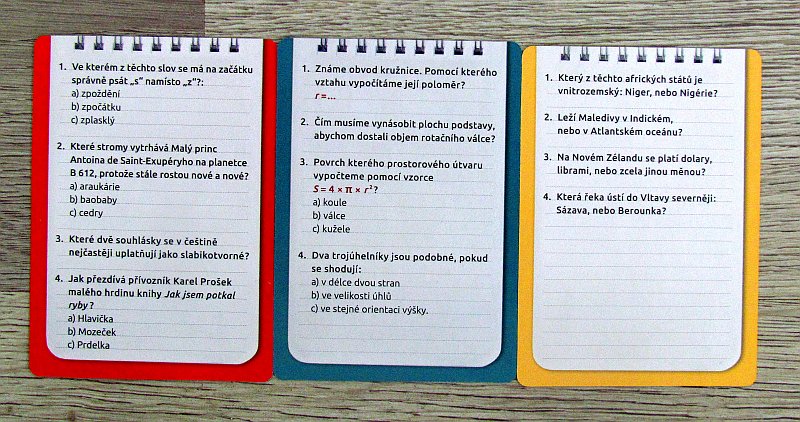 1. Ve kterém z těchto slov se má na začátku
správně psát „s“ namísto „z“?:
a) zpoždění
b) zpočátku
c) zplasklý
2. Které stromy vytrhává Malý princ
Antoina de Saint-Exupéryho na planetce
B 612, protože stále rostou nové a nové?
a) araukárie
b) baobaby
c) cedry
3. Které dvě souhlásky se v češtině
nejčastěji uplatňují jako slabikotvorné?
4. Jak přezdívá přívozník Karel Prošek
malého hrdinu knihy Jak jsem potkal
ryby?
a) Hlavička
b) Mozeček
c) Prdelka
1. Známe obvod kružnice. Pomocí kterého
vztahu vypočítáme její poloměr?
r =...
2. Čím musíme vynásobit plochu podstavy,
abychom dostali objem rotačního válce?
3. Povrch kterého prostorového útvaru
vypočteme pomocí vzorce
S = 4 × π × r²?
a) koule
b) válce
c) kužele
4. Dva trojúhelníky jsou podobné, pokud
se shodují:
a) v délce dvou stran
b) ve velikosti úhlů
c) ve stejné orientaci výšky.
1. Který z těchto afrických států je
vnitrozemský: Niger, nebo Nigérie?
2. Leží Maledivy v Indickém,
nebo v Atlantském oceánu?
3. Na Novém Zélandu se platí dolary,
librami, nebo zcela jinou měnou?
4. Která řeka ústí do Vltavy severněji:
Sázava, nebo Berounka?